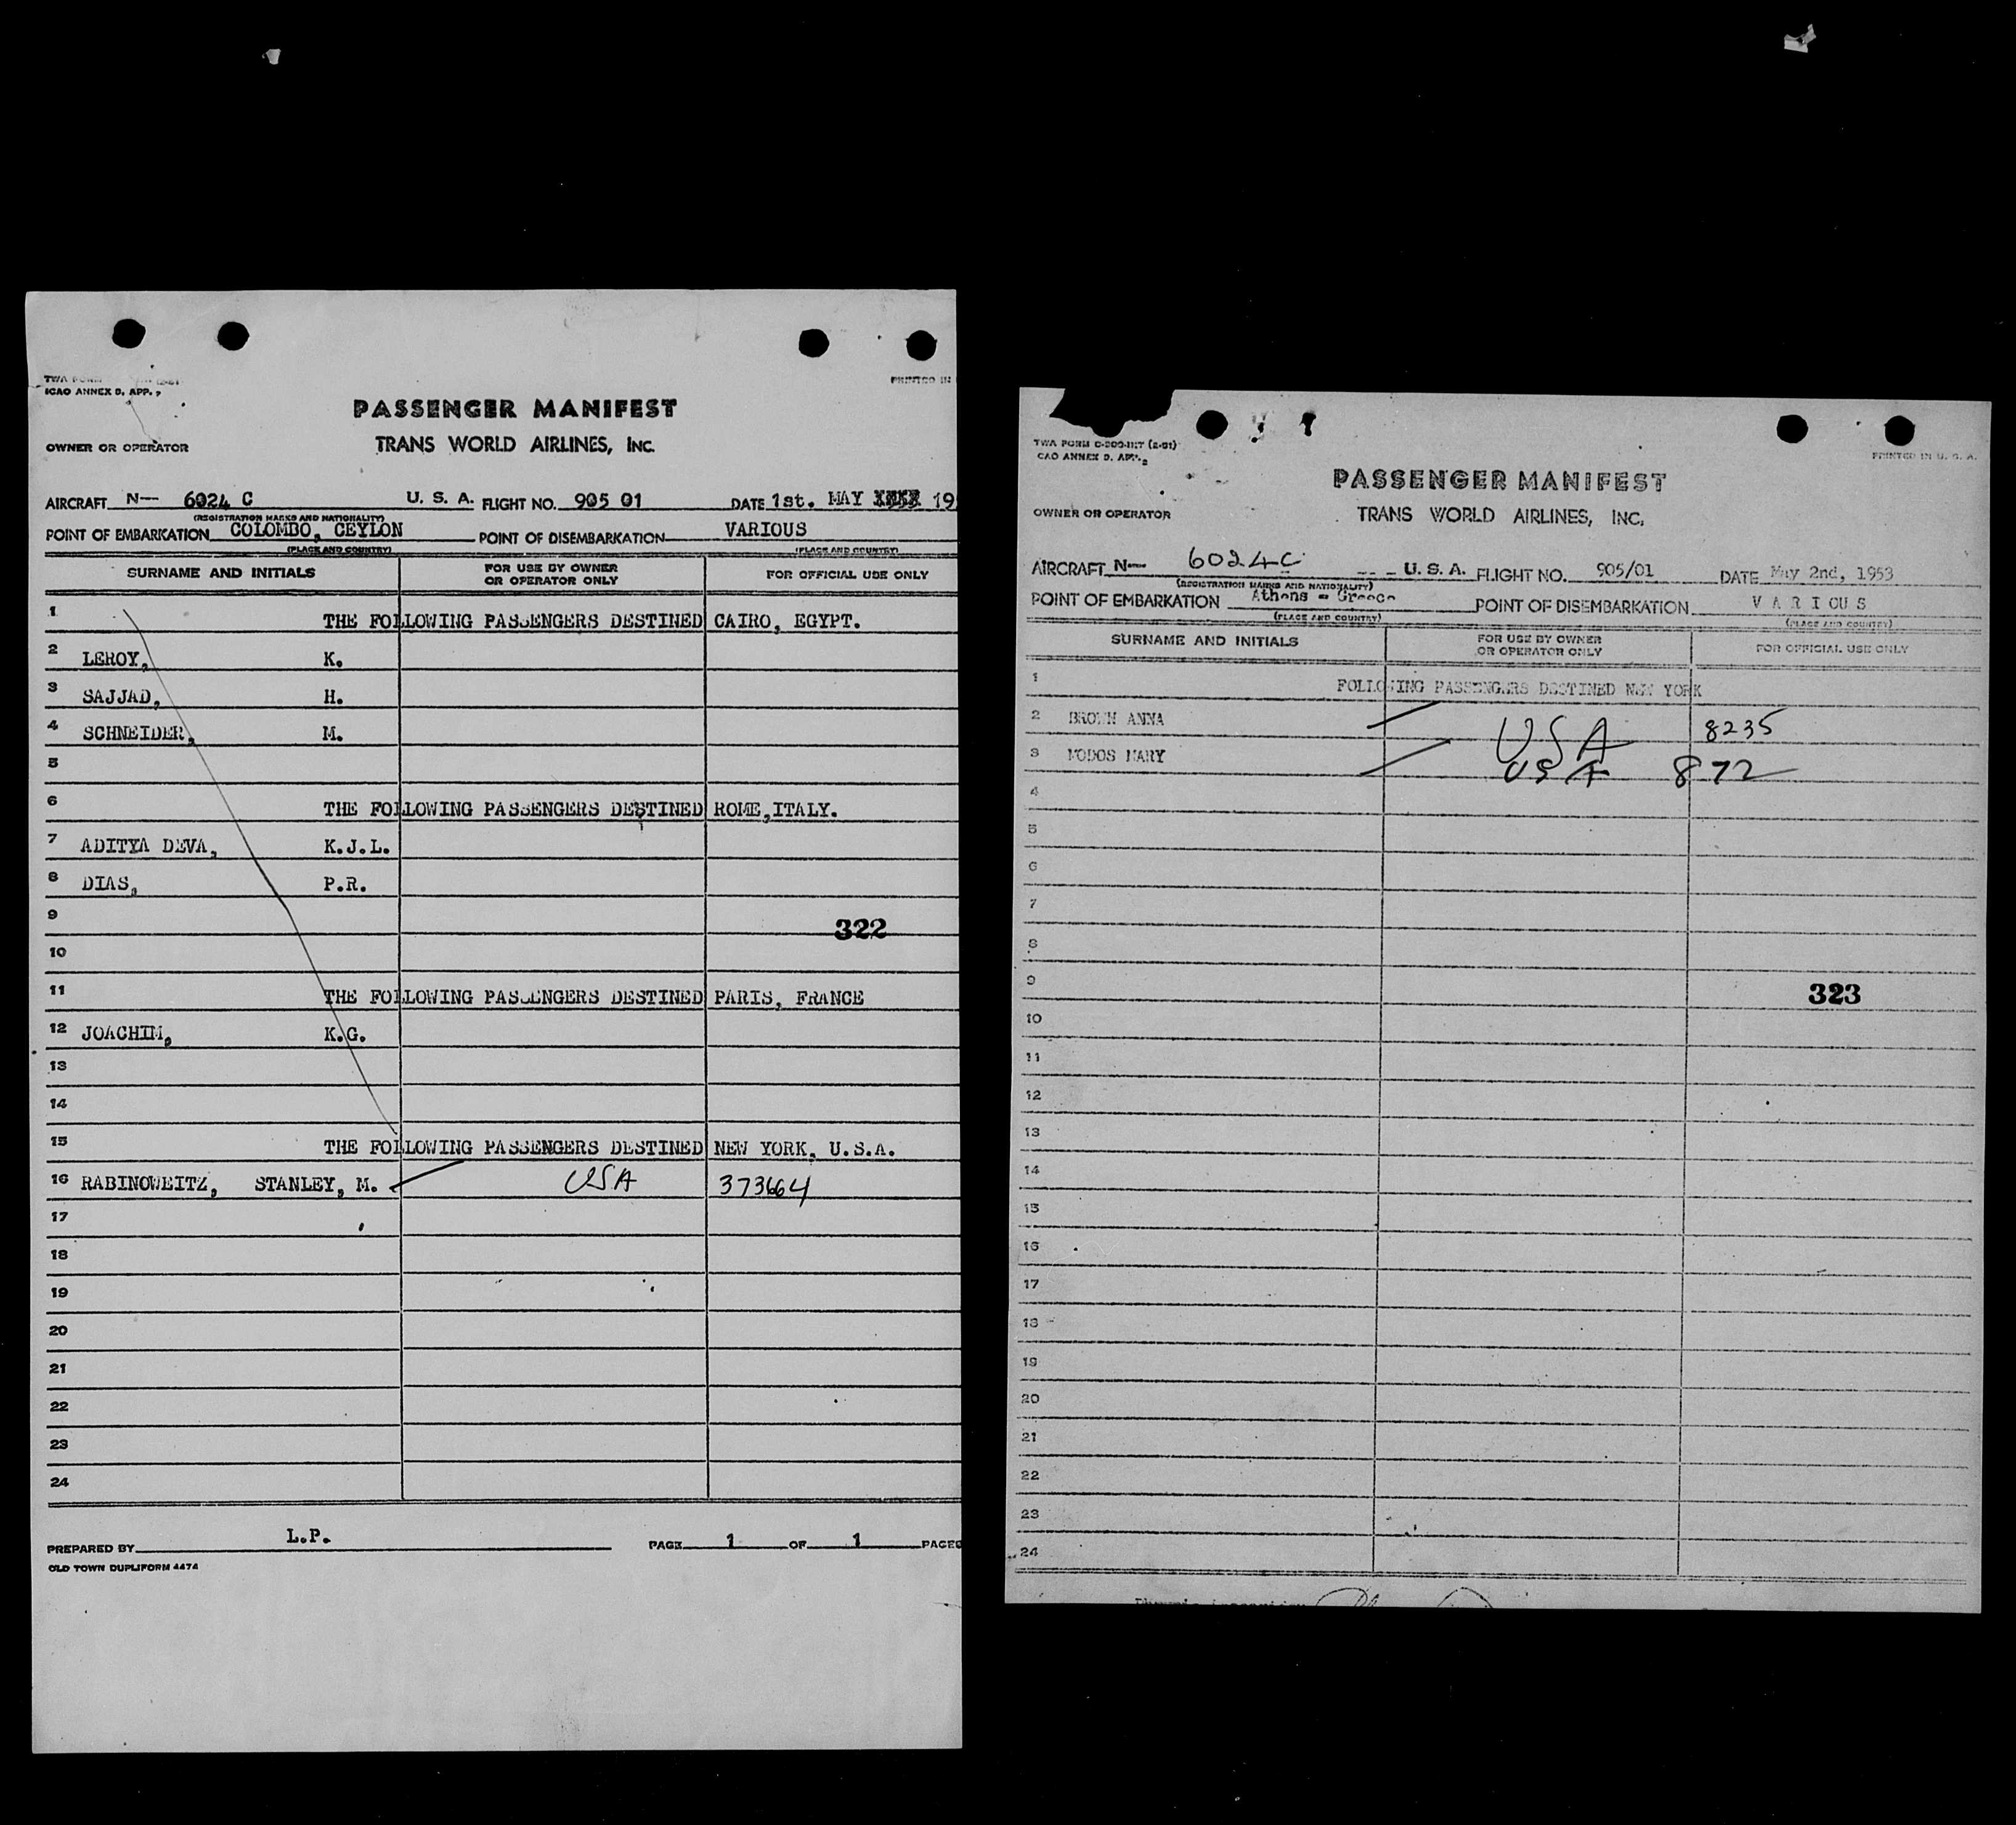 ICAO ANNEX 9, APP.
PRINTED IN
PASSENGER MANIFEST
OWNER OR OPERATOR TRANS WORLD AIRLINES, INC.
AIRCRAFT N— 6024 C U. S. A. FLIGHT NO. 905 01 DATE 1st. MAY 19
(REGISTRATION MARKS AND NATIONALITY)
POINT OF EMBARKATION COLOMBO, CEYLON POINT OF DISEMBARKATION VARIOUS
(PLACE AND COUNTRY) (PLACE AND COUNTRY)
SURNAME AND INITIALS FOR USE BY OWNER OR OPERATOR ONLY FOR OFFICIAL USE ONLY
1 THE FOLLOWING PASSENGERS DESTINED CAIRO, EGYPT.
2 LEROY, K.
3 SAJJAD, H.
4 SCHNEIDER, M.
5
6 THE FOLLOWING PASSENGERS DESTINED ROME,ITALY.
7 ADITYA DEVA, K.J.L.
8 DIAS, P.R.
9 322
10
11 THE FOLLOWING PASSENGERS DESTINED PARIS, FRANCE
12 JOACHIM, K.G.
13
14
15 THE FOLLOWING PASSENGERS DESTINED NEW YORK, U.S.A.
16 RABINOWEITZ, STANLEY, M. USA 373664
17
18
19
20
21
22
23
24
PREPARED BY L.P. PAGE 1 OF 1 PAGES
OLD TOWN DUPLIFORM 4474
TWA FORM
CAO ANNEX 9, APP.
PRINTED IN U. S. A.
PASSENGER MANIFEST
OWNER OR OPERATOR TRANS WORLD AIRLINES, INC.
AIRCRAFT N— 6024C U. S. A. FLIGHT NO. 905/01 DATE May 2nd, 1953
(REGISTRATION MARKS AND NATIONALITY)
POINT OF EMBARKATION Athens - Greece POINT OF DISEMBARKATION V A R I OU S
(PLACE AND COUNTRY) (PLACE AND COUNTRY)
SURNAME AND INITIALS FOR USE BY OWNER OR OPERATOR ONLY FOR OFFICIAL USE ONLY
1 FOLLOWING PASSENGERS DESTINED NEW YORK
2 BROWN ANNA USA 8235
3 MARY USA 872
4
5
6
7
8
9 323
10
11
12
13
14
15
16
17
18
19
20
21
22
23
24